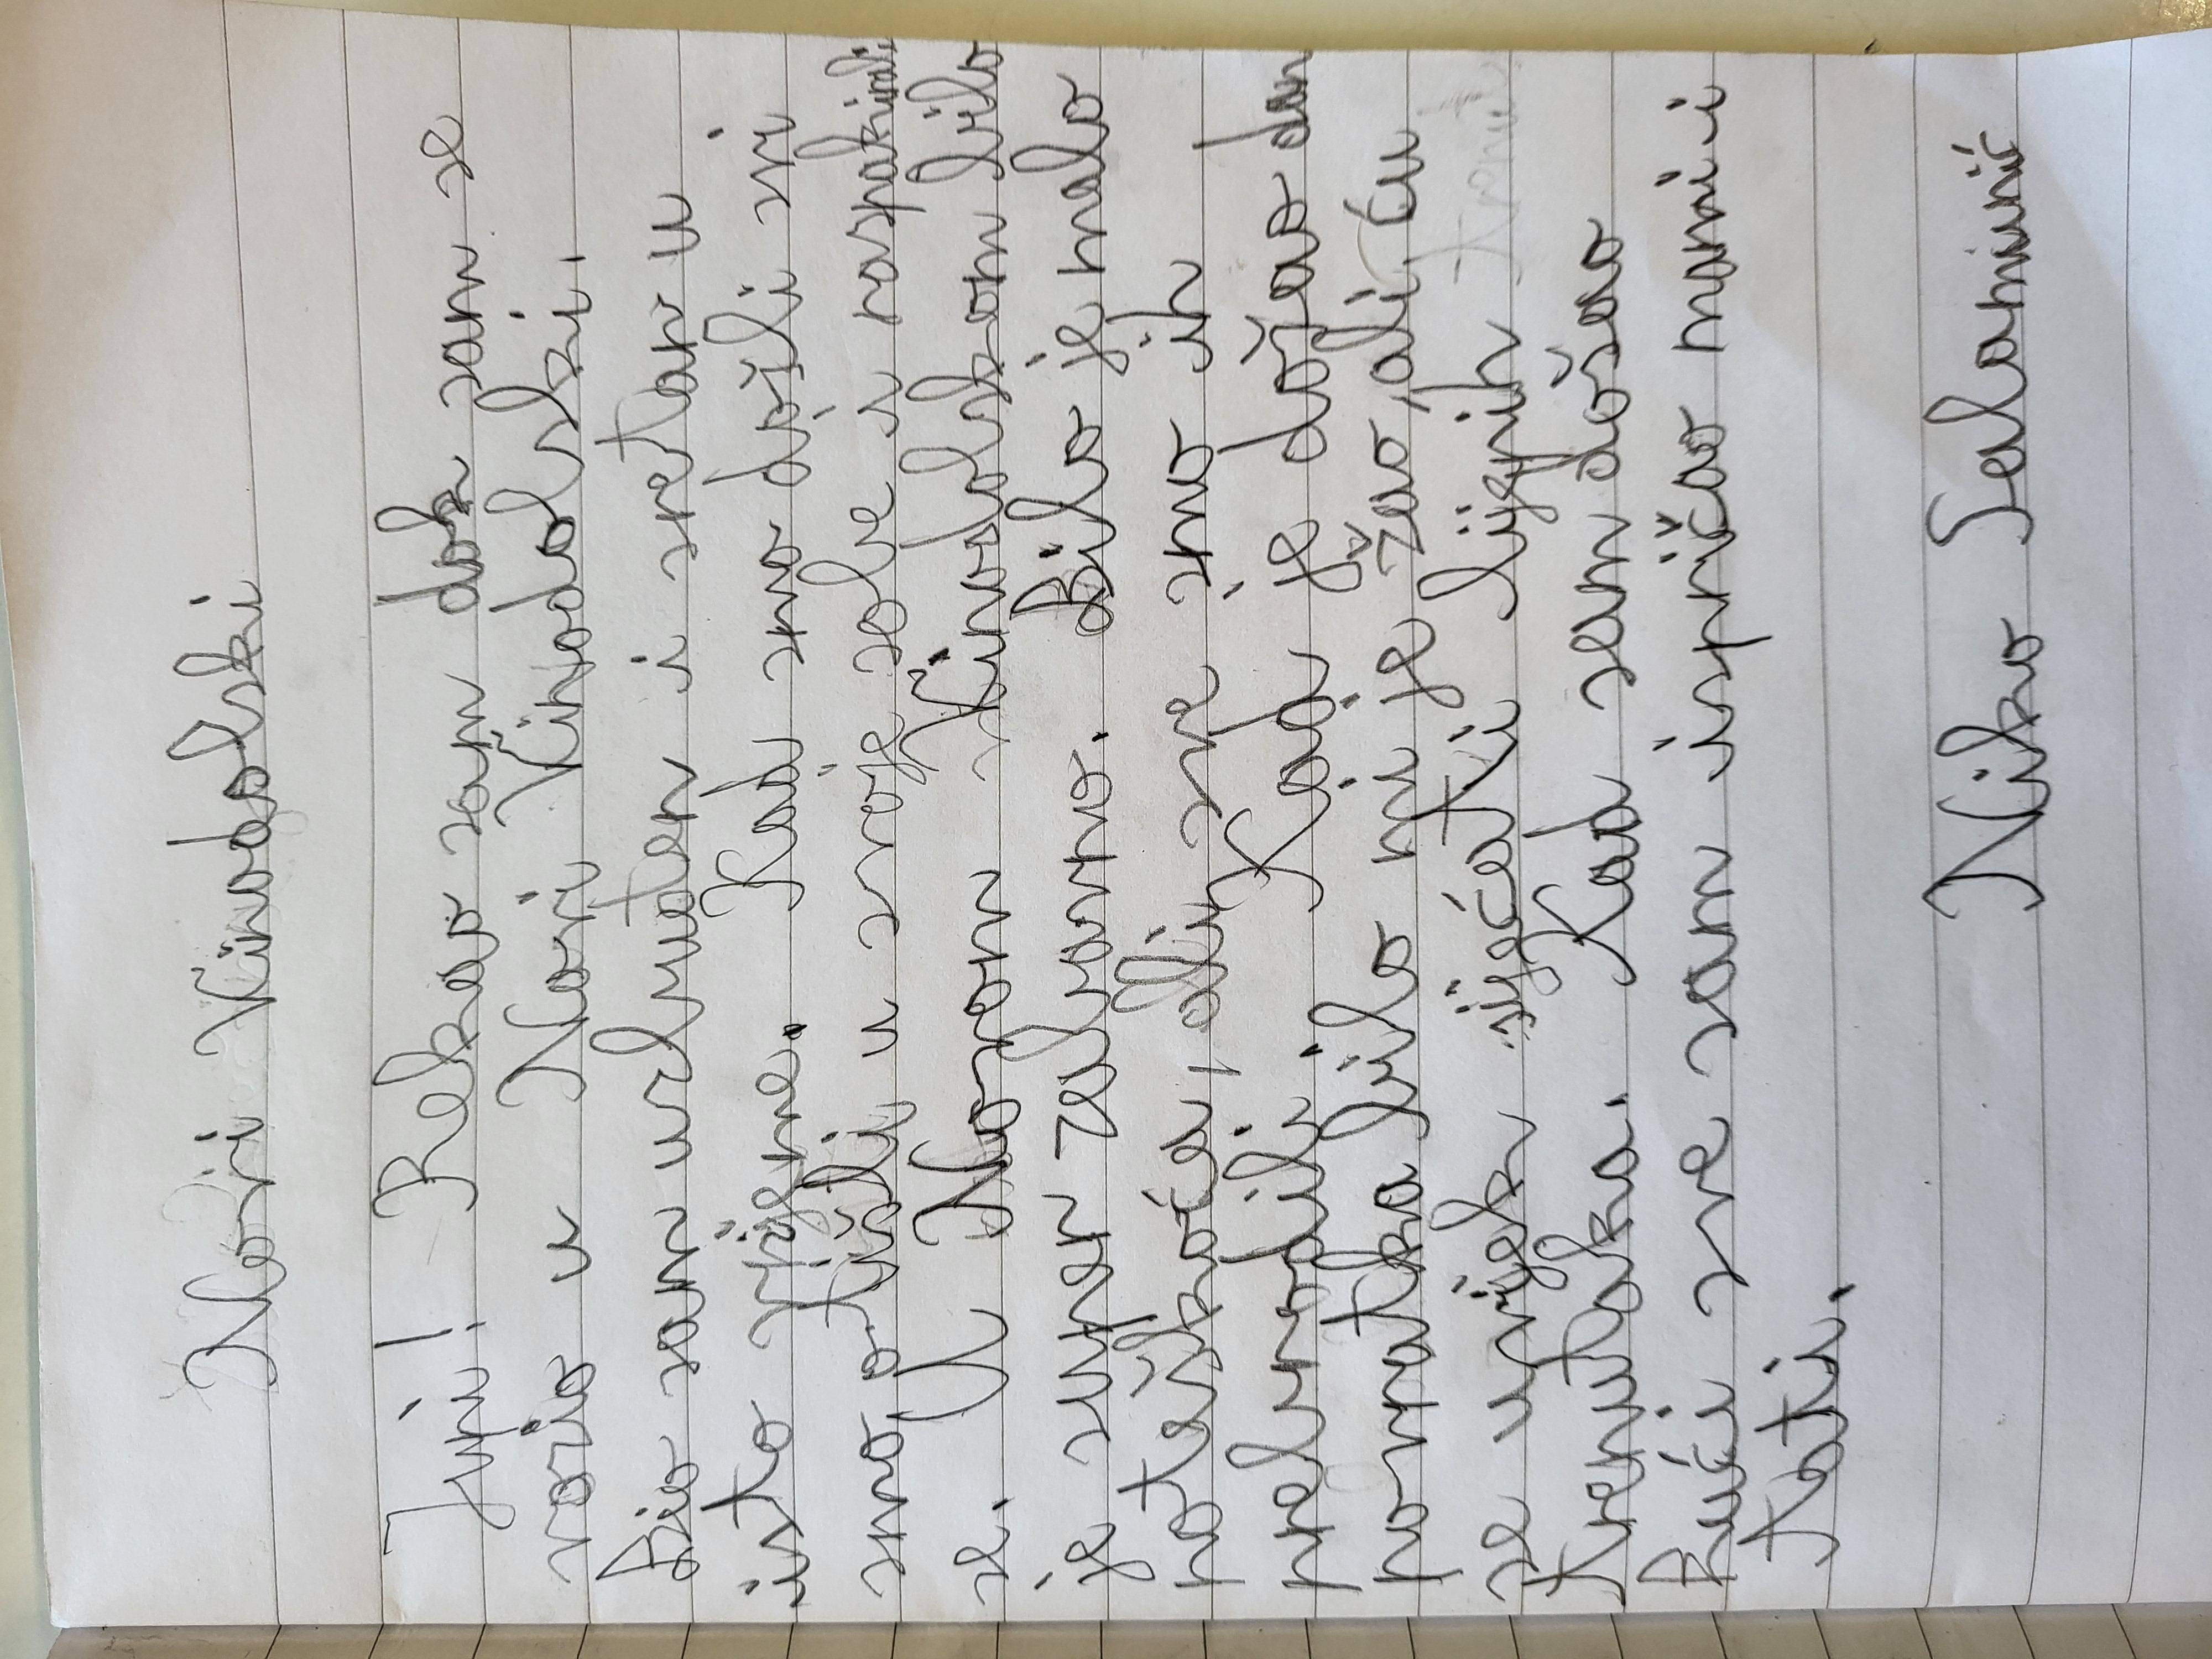 Novi Vinodolski
Jupi! Rekao sam dok sam se
vozio u Novi Vinodolski.
Bio sam uzbuđen i sretan u
isto vrijeme. Kad smo došli mi
smo otišli u svoje sobe i raspakirali
se. U Novom Vinodolskom bilo
je super zabavno. Bilo je malo
poteškoća, ali sve smo ih
prebrodili. Kad je došao dan
povratka bilo mi je žao, ali ću
se uvijek sjećati lijepih
trenutaka. Kad sam došao
kući sve sam ispričao mami i
tati.
Niko